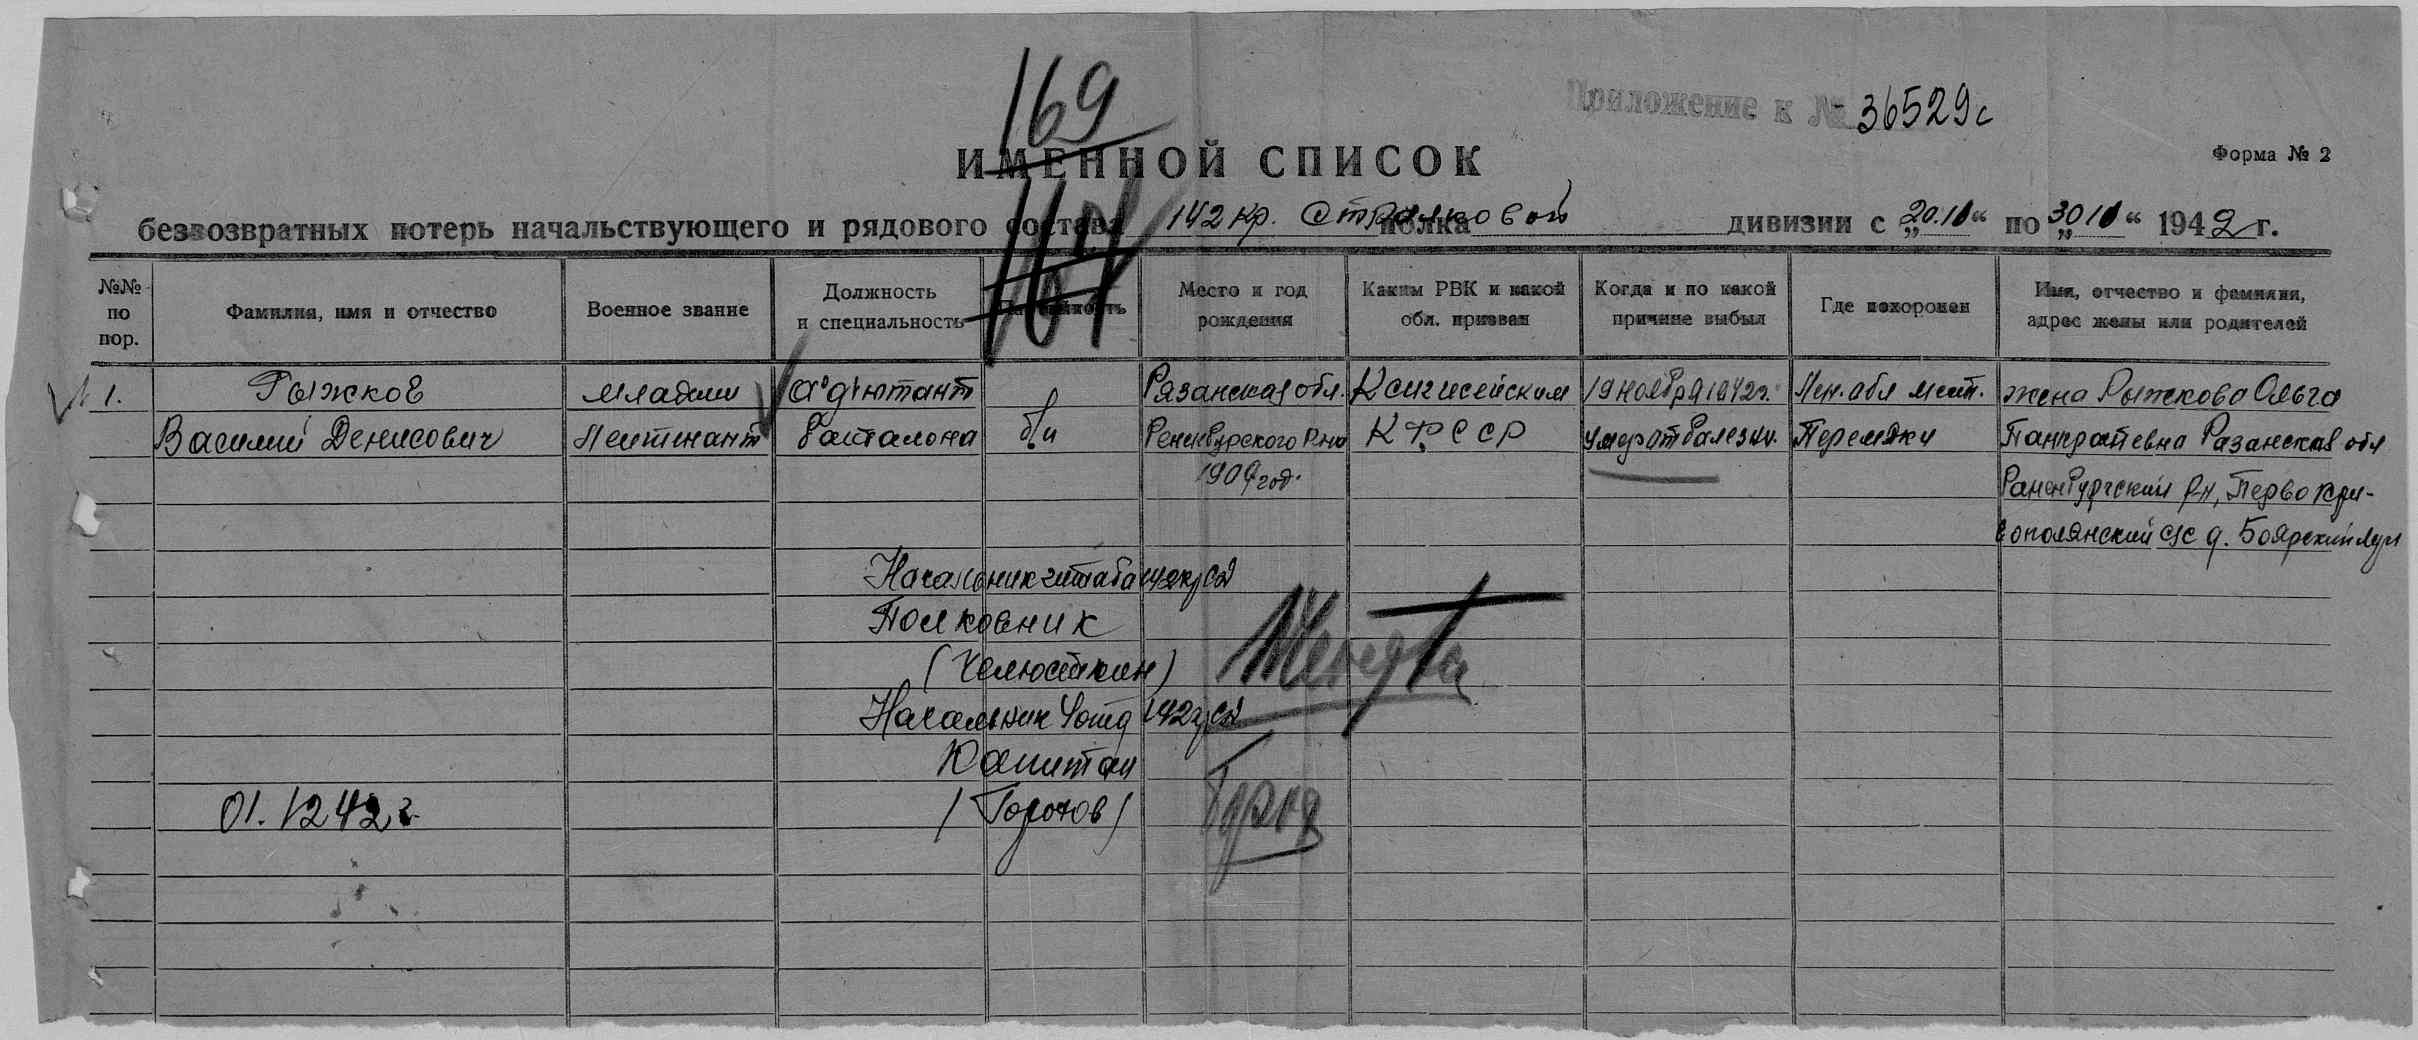 169
Приложение к № 36529с
ИМЕННОЙ СПИСОК
Форма № 2
безвозвратных потерь начальствующего и рядового состава 142 кр. Стрелковой полка дивизии с „20.11“ по „30 11“ 1942 г.
№№ по пор.
Фамилия, имя и отчество
Военное звание
Должность и специальность
Партийность
Место и год рождения
Каким РВК и какой обл. призван
Когда и по какой причине выбыл
Где похоронен
Имя, отчество и фамилия, адрес жены или родителей
1. Рыжков младший адъютант Рязанская обл. 19 ноября 1942г. Лен. обл мест. жена Рыжкова Ольга
Василий Денисович Лейтинант батталона б/п Раненбургского р-на КФССР умер от болезни. Перемяки Панкратевна Рязанская обл
1909 год. Раненбургский р-н, Перво Кри-
вополянский с/с д. Боярский
Начальник штаба 142 кр сд
Полковник
(Челюсткин)
Начальник 4 отд 142 кр сд
Капитан
01.12 42 г.